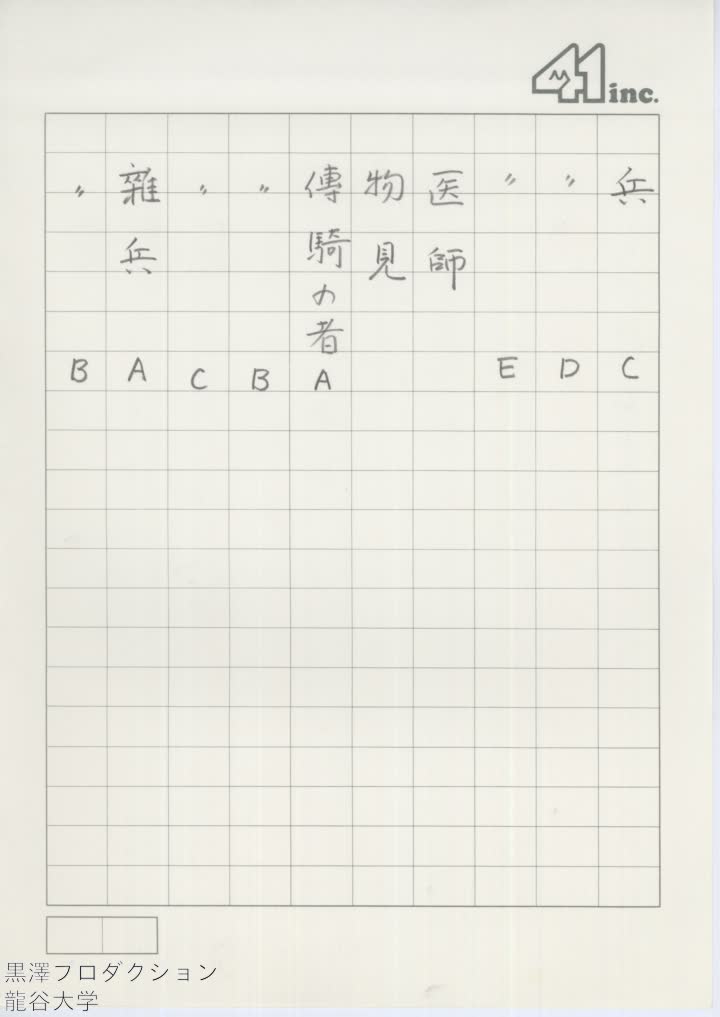 41 inc.
兵 C
〃 D
〃 E
医師
物見
傳騎の者 A
〃 B
〃 C
雜兵 A
〃 B
黒澤フロダクション
龍谷大学